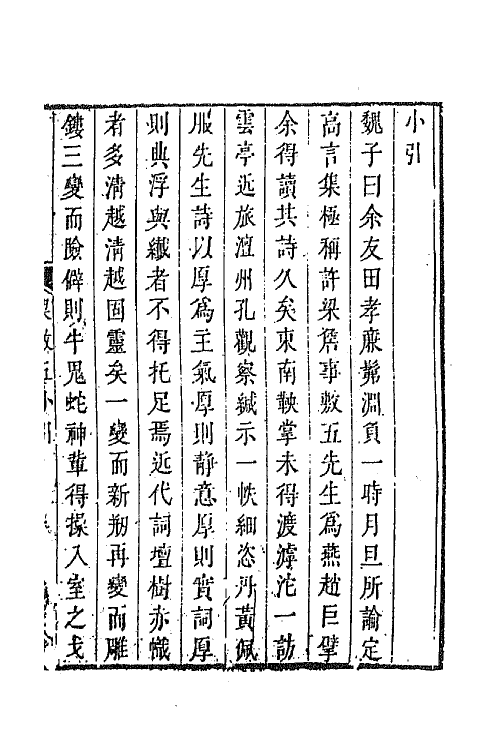 小引
魏子曰余友田孝廉髴淵負一時月旦所論定
高言集極稱許梁詹事敷五先生爲燕趙巨擘
余得讀其詩久矣東南鞅掌未得渡滹沱一訪
雲亭近旅澶州孔觀察緘示一帙細恣丹黃佩
服先生詩以厚爲主氣厚則靜意厚則實詞厚
則典浮與纖者不得托足焉近代詞壇樹赤幟
者多清越清越固靈矣一變而新刱再變而雕
鏤三變而險僻則牛鬼蛇神軰得操入室之戈